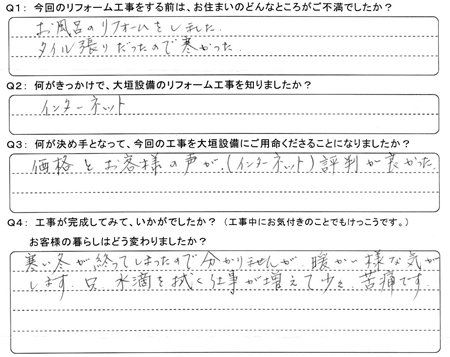 Q1: 今回のリフォーム工事をする前は、お住まいのどんなところがご不満でしたか？
お風呂のリフォームをしました.
タイル張りだったので寒かった.
Q2: 何がきっかけで、大垣設備のリフォーム工事を知りましたか？
インターネット
Q3: 何が決め手となって、今回の工事を大垣設備にご用命くださることになりましたか？
価格とお客様の声が.(インターネット)評判が良かった.
Q4: 工事が完成してみて、いかがでしたか？（工事中にお気付きのことでもけっこうです。）
お客様の暮らしはどう変わりましたか？
寒い冬が終ってしまったので分かりませんが. 暖かい様な気が
します. 只. 水滴を拭く仕事が増えて少々. 苦痛です.